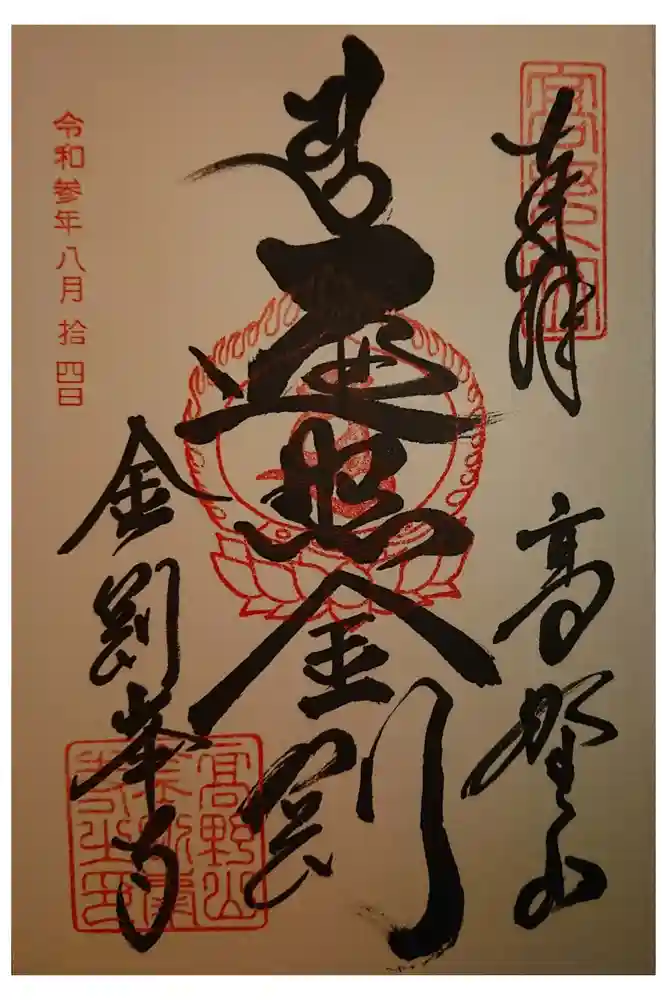 奉拝
高野山
高野山
遍照金剛
金剛峯寺
令和参年八月拾四日